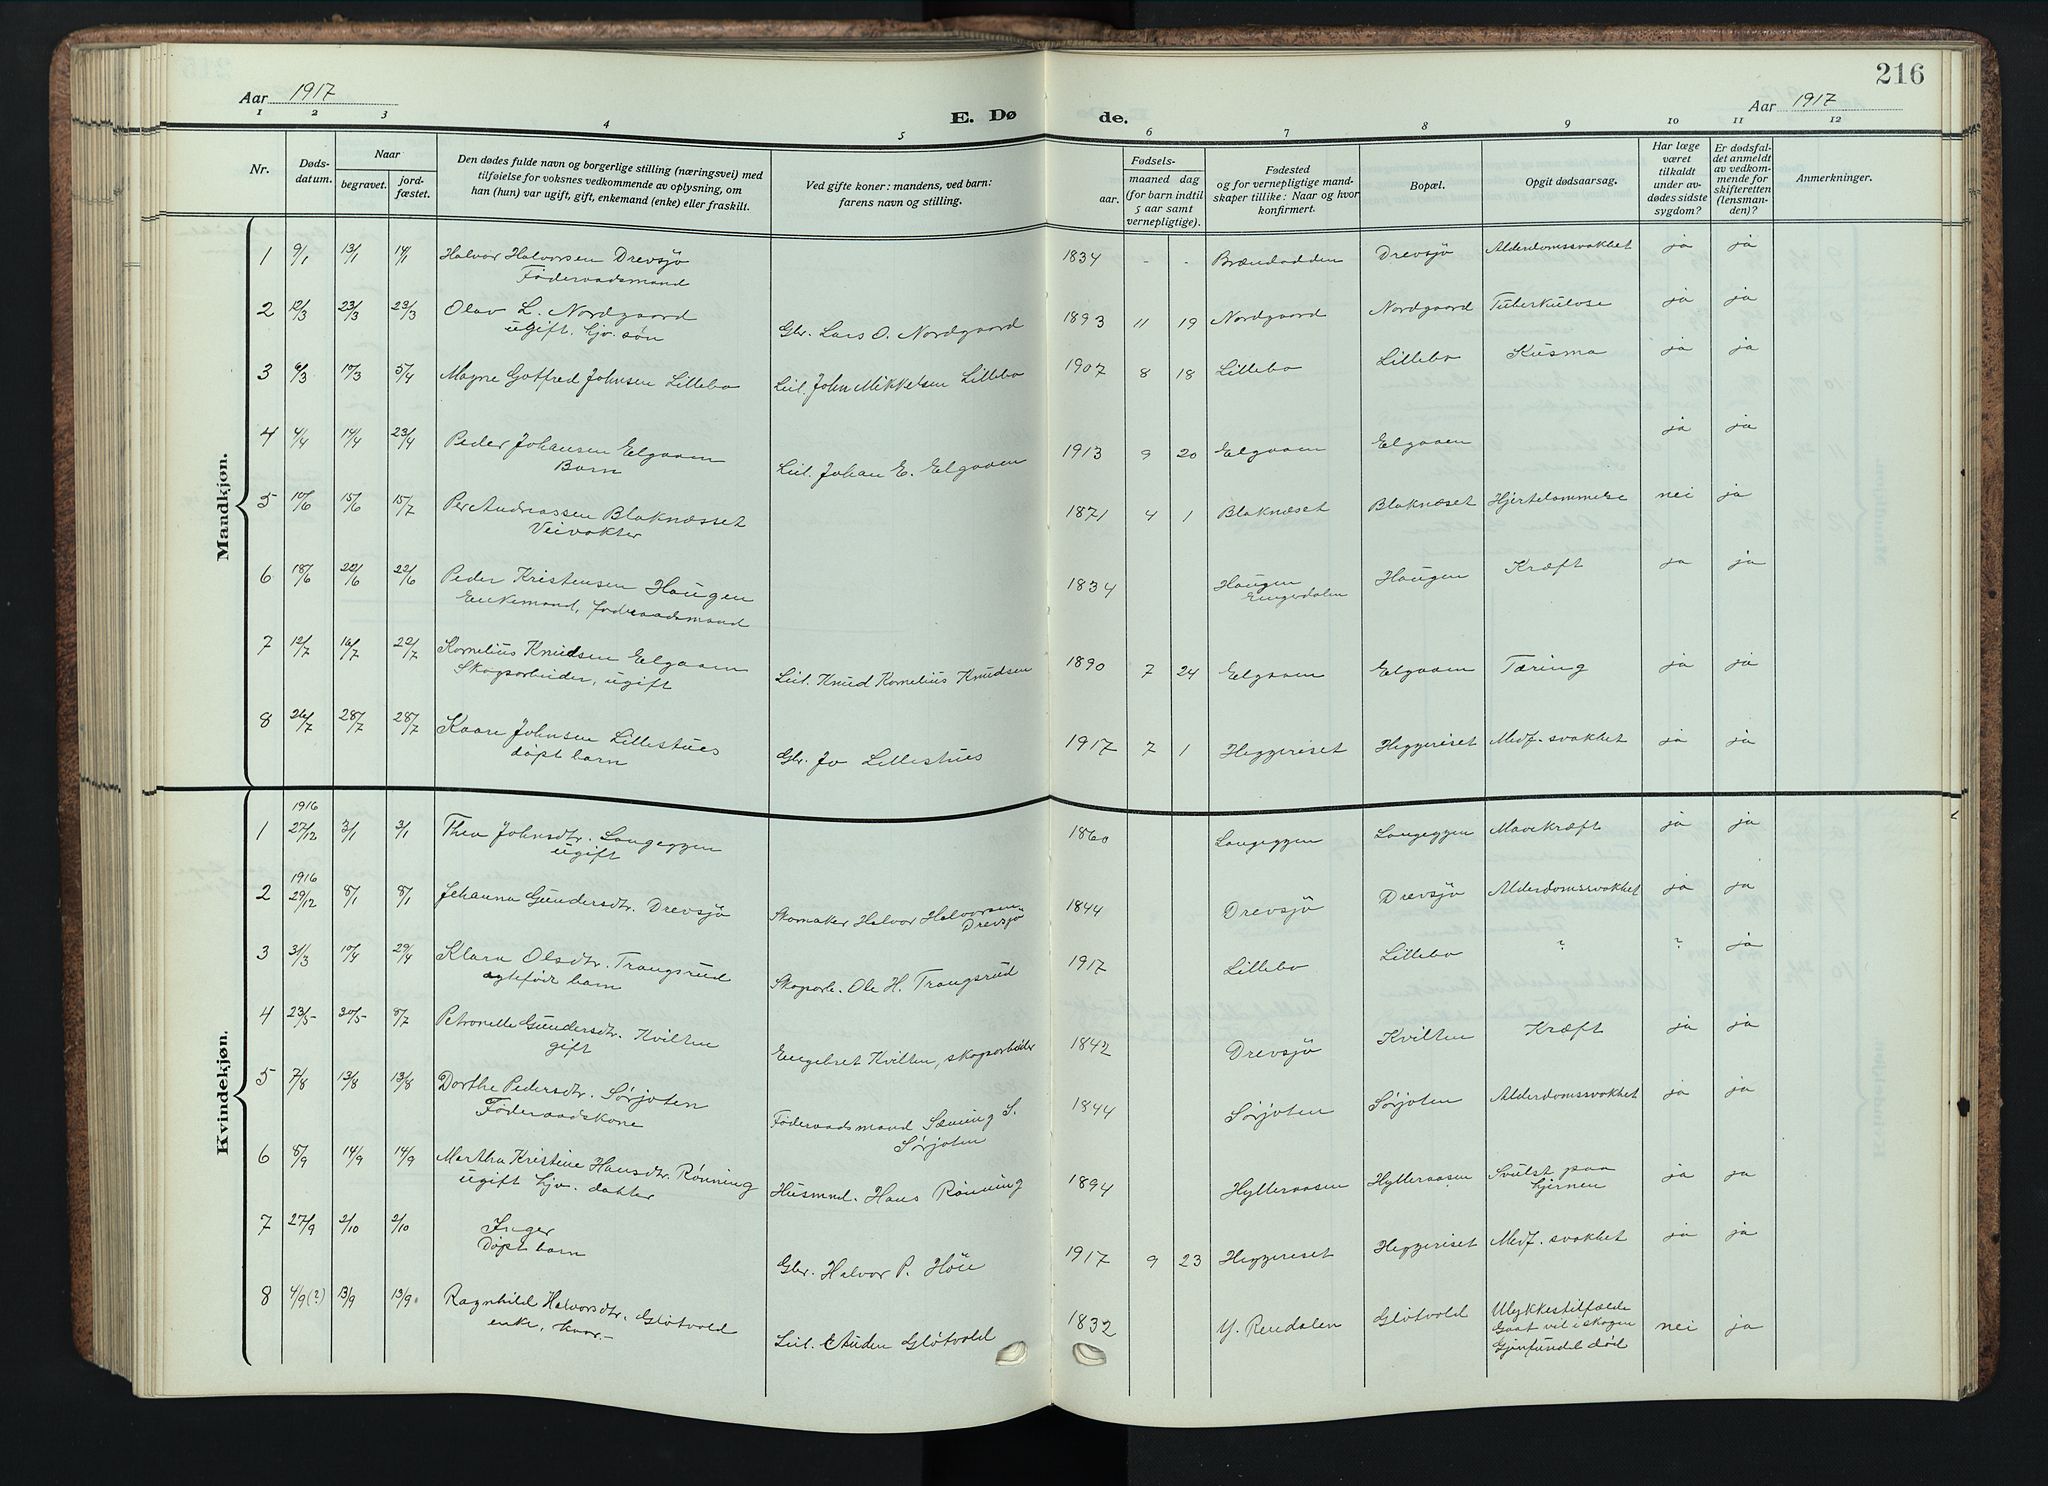 216
Aar 1917
E. Døde.
Aar 1917
1 2 3 4 5 6 7 8 9 10 11 12
Nr.
Dødsdatum.
Naar
begravet.
jordfæstet.
Den dødes fulde navn og borgerlige stilling (næringsvei) med
tilføielse for voksnes vedkommende av oplysning, om
han (hun) var ugift, gift, enkemand (enke) eller fraskilt.
Ved gifte koner: mandens, ved barn:
farens navn og stilling.
Fødsels-
aar. maaned dag
(for barn indtil
5 aar samt
vernepligtige).
Fødested
og for vernepligtige mandskaper tillike: Naar og hvor
konfirmert.
Bopæl.
Opgit dødsaarsag.
Har læge
været
tilkaldt
under avdødes sidste
sygdom?
Er dødsfaldet anmeldt
av vedkommende for
skifteretten
(lensmanden)?
Anmerkninger.
Mandkjøn.
1 9/1 13/1 14/1 Halvor Halvorsen Drevsjø 1834 - - Brændodden Drevsjø Alderdomssvakhet ja ja
Føderaadsmand
2 12/3 23/3 23/3 Olav L. Nordgaard Gbr. Lars O. Nordgaard 1893 11 19 Nordgaard Nordgaard Tuberkulose ja ja
ugift. hjv. søn
3 6/3 10/3 5/4 Magne Gotfred Johnsen Lillebo Leil. John Mikkelsen Lillebo 1907 8 18 Lillebo Lillebo Kusma ja ja
4 4/4 14/4 23/4 Peder Johansen Elgaaen Leil. Johan E. Elgaaen 1913 9 20 Elgaaen Elgaaen ja ja
Barn
5 10/6 15/6 15/7 Per Andreassen Blaknæsset 1871 4 1 Blaknæset Blaknæset Hjertelammelse nei ja
Veivokter
6 18/6 22/6 22/6 Peder Kristensen Haugen 1834 Haugen Haugen Kræft ja ja
Enkemand, føderaadsmand Engerdalen
7 12/7 16/7 22/7 Kornelius Knudsen Elgaaen Leil. Knud Kornelius Knudsen 1890 7 24 Elgaaen Elgaaen Tæring ja ja
Skogsarbeider, ugift
8 26/7 28/7 28/7 Kaare Johnsen Lillestues Gbr. Jo Lillestues 1917 7 1 Heggeriset Heggeriset Medf. svakhet ja ja
døpt barn
Kvindekjøn.
1916
1 27/12 3/1 3/1 Thea Johnsdtr. Langeggen 1860 Langeggen Langeggen Mavekræft ja ja
ugift
1916
2 29/12 8/1 8/1 Johanna Gundersdtr. Drevsjø Skomaker Halvor Halvorsen Drevsjø 1844 Drevsjø Drevsjø Alderdomssvakhet ja ja
3 31/3 10/4 29/4 Klara Olsdtr. Trangsrud Skogarb. Ole H. Trangsrud 1917 Lillebo Lillebo ? ? ja
egtefødt barn
4 23/5 30/5 8/7 Petronelle Gundersdtr. Kvilten Engebret Kvilten, skogsarbeider 1842 Drevsjø Kvilten Kræft ja ja
gift
5 7/8 13/8 13/8 Dorthe Pedersdtr. Sørjoten Føderaadsmand Sæming S. Sørjoten 1844 Sørjoten Sørjoten Alderdomssvakhet ja ja
Føderaadskone
6 8/9 14/9 14/9 Martha Kristine Hansdtr. Rønning Husmnd. Hans Rønning 1894 Hylleraasen Hylleraasen Svulst paa hjernen ja ja
ugift hjv. datter
7 27/9 2/10 2/10 Inger Gbr. Halvor P. Høie 1917 9 23 Heggeriset Heggeriset Medf. svakhet ja ja
Døpt barn
8 4/9(?) 13/9 13/9. Ragnhild Halvorsdtr. Gløtvold Leil. Auden Gløtvold 1832 Y. Rendalen Gløtvold Ulykkestilfælde nei ja
enke, kaar.- Gaat vil i skogen
Gjenfundet død